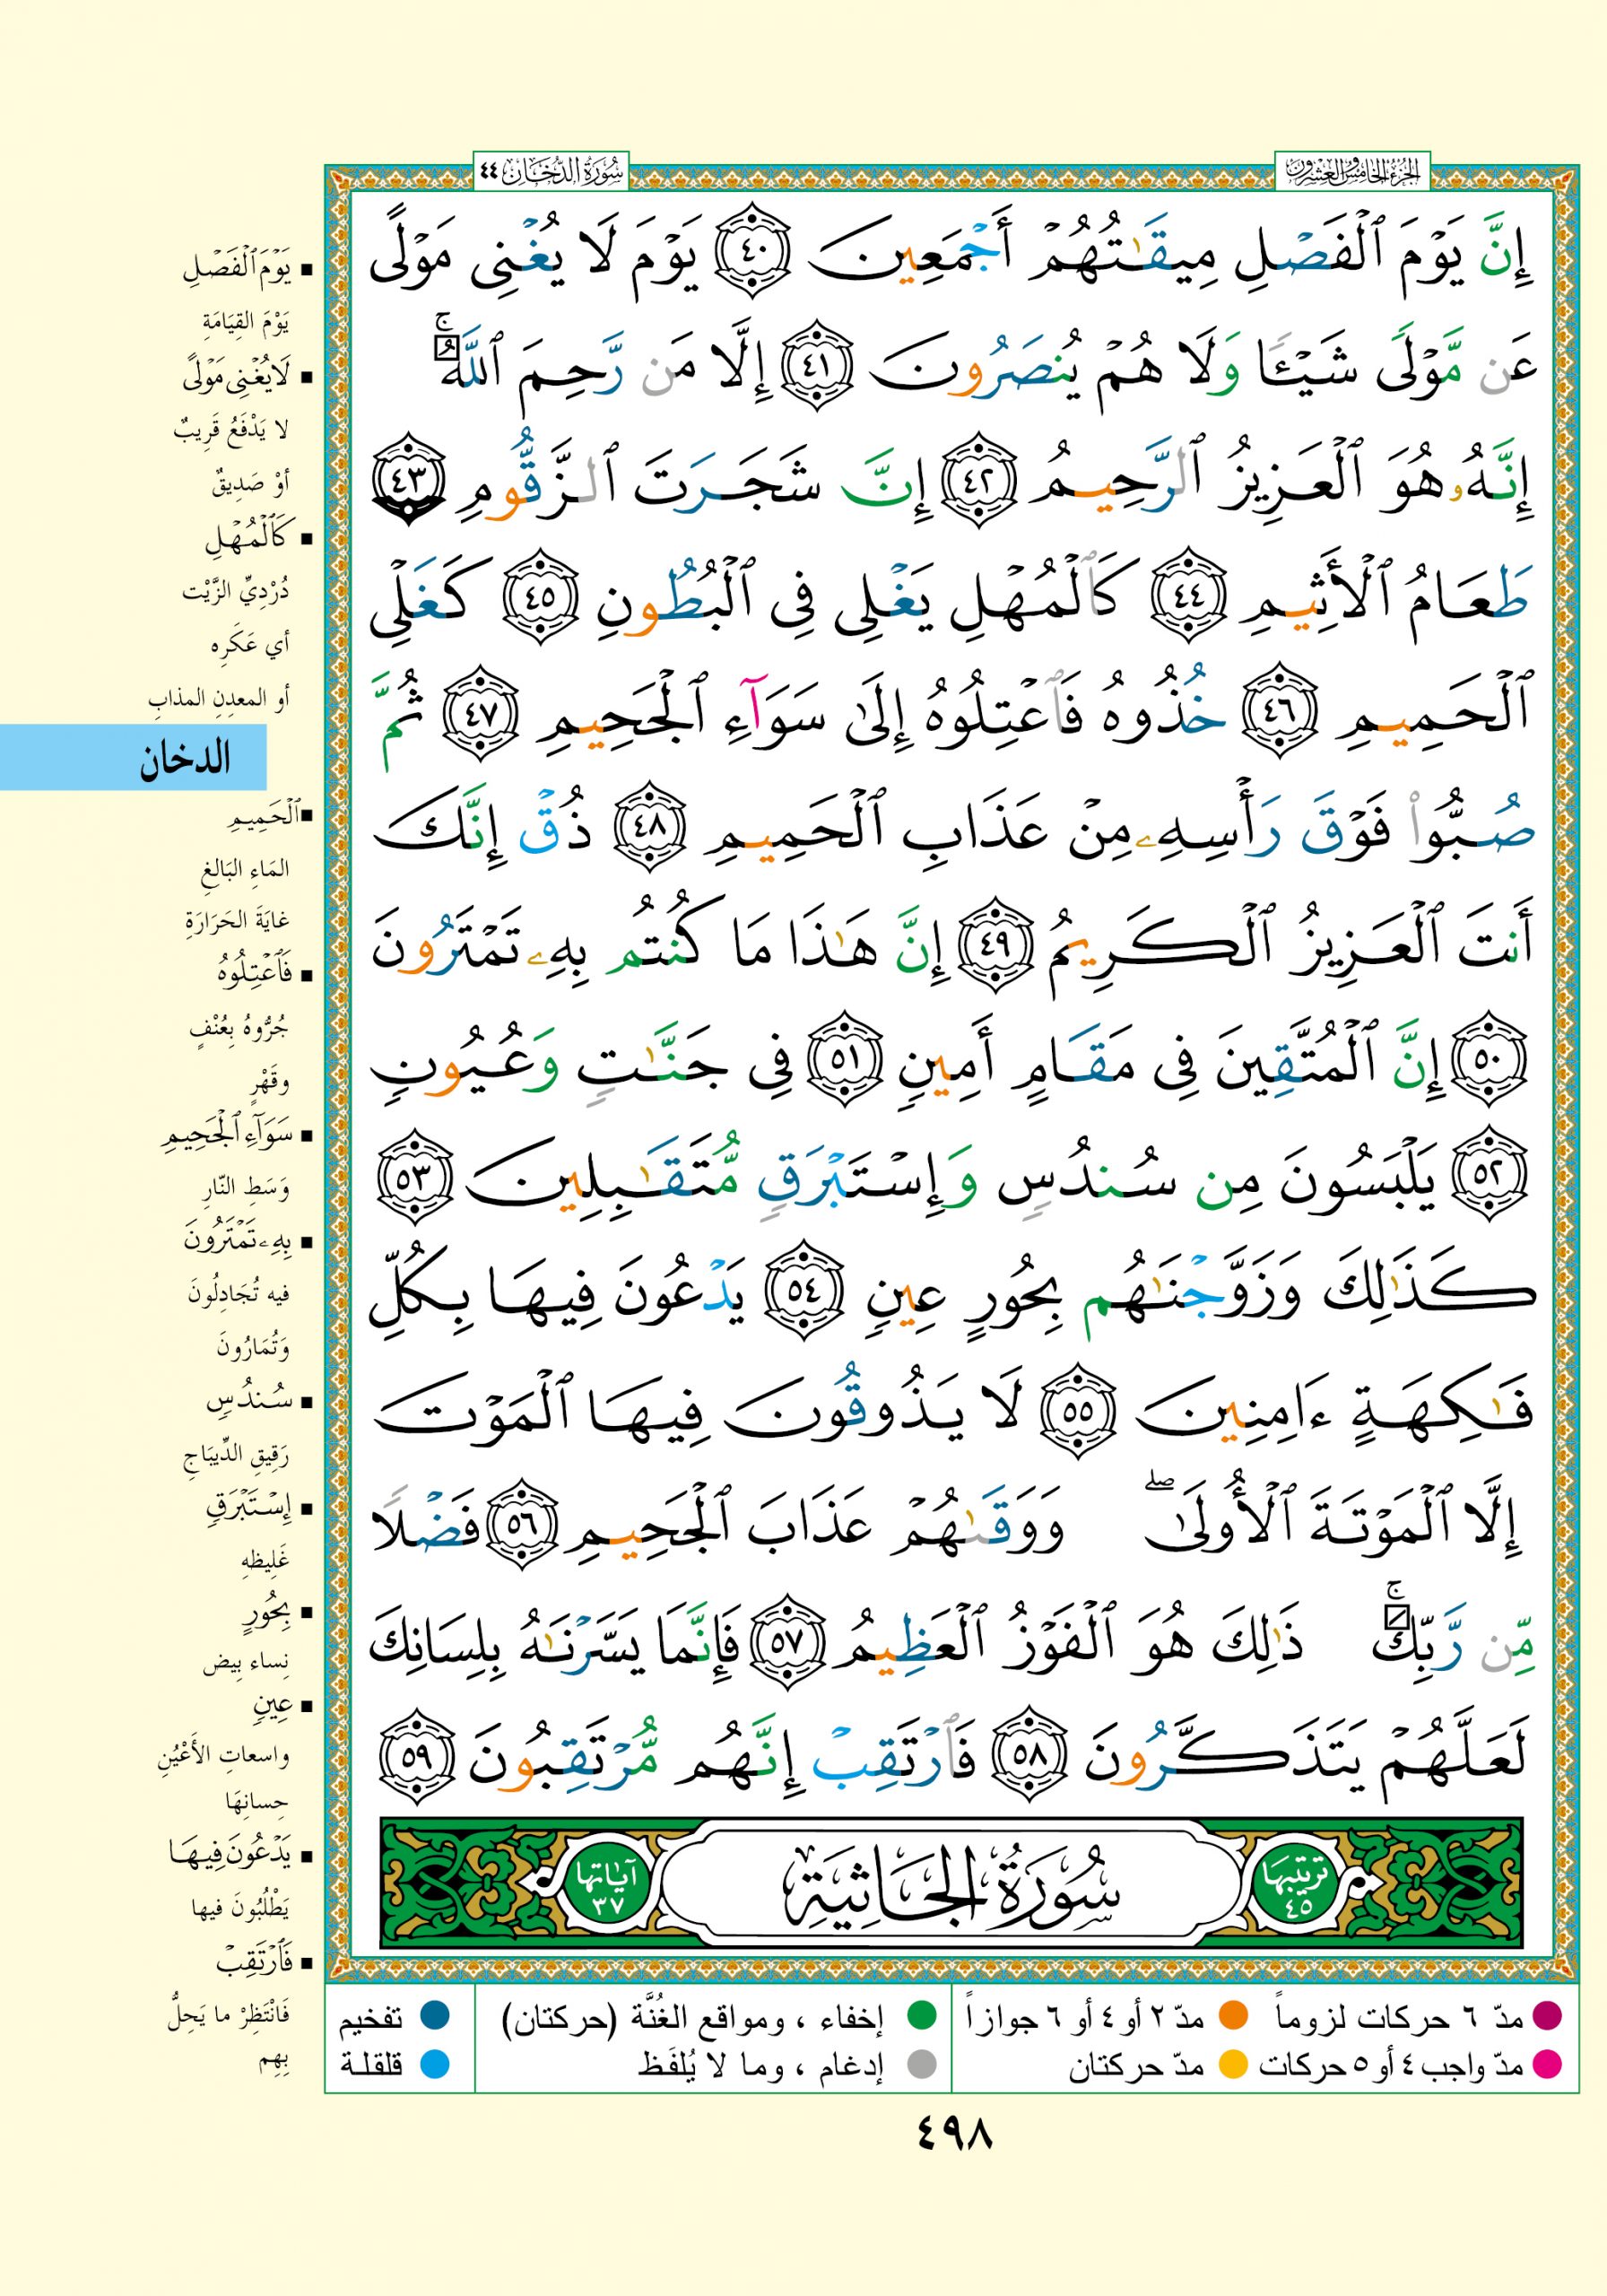 الجزء الخامس والعشرون
سُورَةُ الدُّخَان ٤٤
إِنَّ يَوْمَ ٱلْفَصْلِ مِيقَٰتُهُمْ أَجْمَعِينَ ٤٠ يَوْمَ لَا يُغْنِى مَوْلًى
عَن مَّوْلًى شَيْـًٔا وَلَا هُمْ يُنصَرُونَ ٤١ إِلَّا مَن رَّحِمَ ٱللَّهُ ۚ
إِنَّهُۥ هُوَ ٱلْعَزِيزُ ٱلرَّحِيمُ ٤٢ إِنَّ شَجَرَتَ ٱلزَّقُّومِ ٤٣
طَعَامُ ٱلْأَثِيمِ ٤٤ كَٱلْمُهْلِ يَغْلِى فِى ٱلْبُطُونِ ٤٥ كَغَلْىِ
ٱلْحَمِيمِ ٤٦ خُذُوهُ فَٱعْتِلُوهُ إِلَىٰ سَوَآءِ ٱلْجَحِيمِ ٤٧ ثُمَّ
صُبُّوا۟ فَوْقَ رَأْسِهِۦ مِنْ عَذَابِ ٱلْحَمِيمِ ٤٨ ذُقْ إِنَّكَ
أَنتَ ٱلْعَزِيزُ ٱلْكَرِيمُ ٤٩ إِنَّ هَٰذَا مَا كُنتُم بِهِۦ تَمْتَرُونَ
٥٠ إِنَّ ٱلْمُتَّقِينَ فِى مَقَامٍ أَمِينٍ ٥١ فِى جَنَّٰتٍ وَعُيُونٍ
٥٢ يَلْبَسُونَ مِن سُندُسٍ وَإِسْتَبْرَقٍ مُّتَقَٰبِلِينَ ٥٣
كَذَٰلِكَ وَزَوَّجْنَٰهُم بِحُورٍ عِينٍ ٥٤ يَدْعُونَ فِيهَا بِكُلِّ
فَٰكِهَةٍ ءَامِنِينَ ٥٥ لَا يَذُوقُونَ فِيهَا ٱلْمَوْتَ
إِلَّا ٱلْمَوْتَةَ ٱلْأُولَىٰ ۖ وَوَقَىٰهُمْ عَذَابَ ٱلْجَحِيمِ ٥٦ فَضْلًا
مِّن رَّبِّكَ ۚ ذَٰلِكَ هُوَ ٱلْفَوْزُ ٱلْعَظِيمُ ٥٧ فَإِنَّمَا يَسَّرْنَٰهُ بِلِسَانِكَ
لَعَلَّهُمْ يَتَذَكَّرُونَ ٥٨ فَٱرْتَقِبْ إِنَّهُم مُّرْتَقِبُونَ ٥٩
ترتيبها ٤٥ سُورَةُ الجَاثِيَةِ آياتها ٣٧
■ يَوْمَ ٱلْفَصْلِ
يَوْمَ القِيَامَةِ
■ لَا يُغْنِى مَوْلًى
لا يَدْفَعُ قَرِيبٌ
أوْ صَدِيقٌ
■ كَٱلْمُهْلِ
دُرْدِيِّ الزَّيْت
أي عَكَرِه
أو المعدِنِ المذابِ
الدخان
■ ٱلْحَمِيمِ
المَاءِ البَالغِ
غايَةَ الحَرَارَةِ
■ فَٱعْتِلُوهُ
جُرُّوهُ بِعُنْفٍ
وقَهْرٍ
■ سَوَآءِ ٱلْجَحِيمِ
وَسَطِ النّارِ
■ بِهِۦ تَمْتَرُونَ
فيه تُجَادِلُونَ
وَتُمَارُونَ
■ سُندُسٍ
رَقِيقِ الدِّيبَاجِ
■ إِسْتَبْرَقٍ
غَلِيظهِ
■ بِحُورٍ
نِساء بِيض
■ عِينٍ
واسعاتِ الأَعْيُنِ
حِسانِهَا
■ يَدْعُونَ فِيهَا
يَطْلُبُونَ فيها
■ فَٱرْتَقِبْ
فَانْتَظِرْ ما يَحِلُّ
بِهِم
مدّ ٦ حركات لزوماً مدّ ٢ أو ٤ أو ٦ جوازاً إخفاء ، ومواقع الغُنَّة (حركتان) تفخيم
مدّ واجب ٤ أو ٥ حركات مدّ حركتان إدغام ، وما لا يُلفَظ قلقلة
٤٩٨